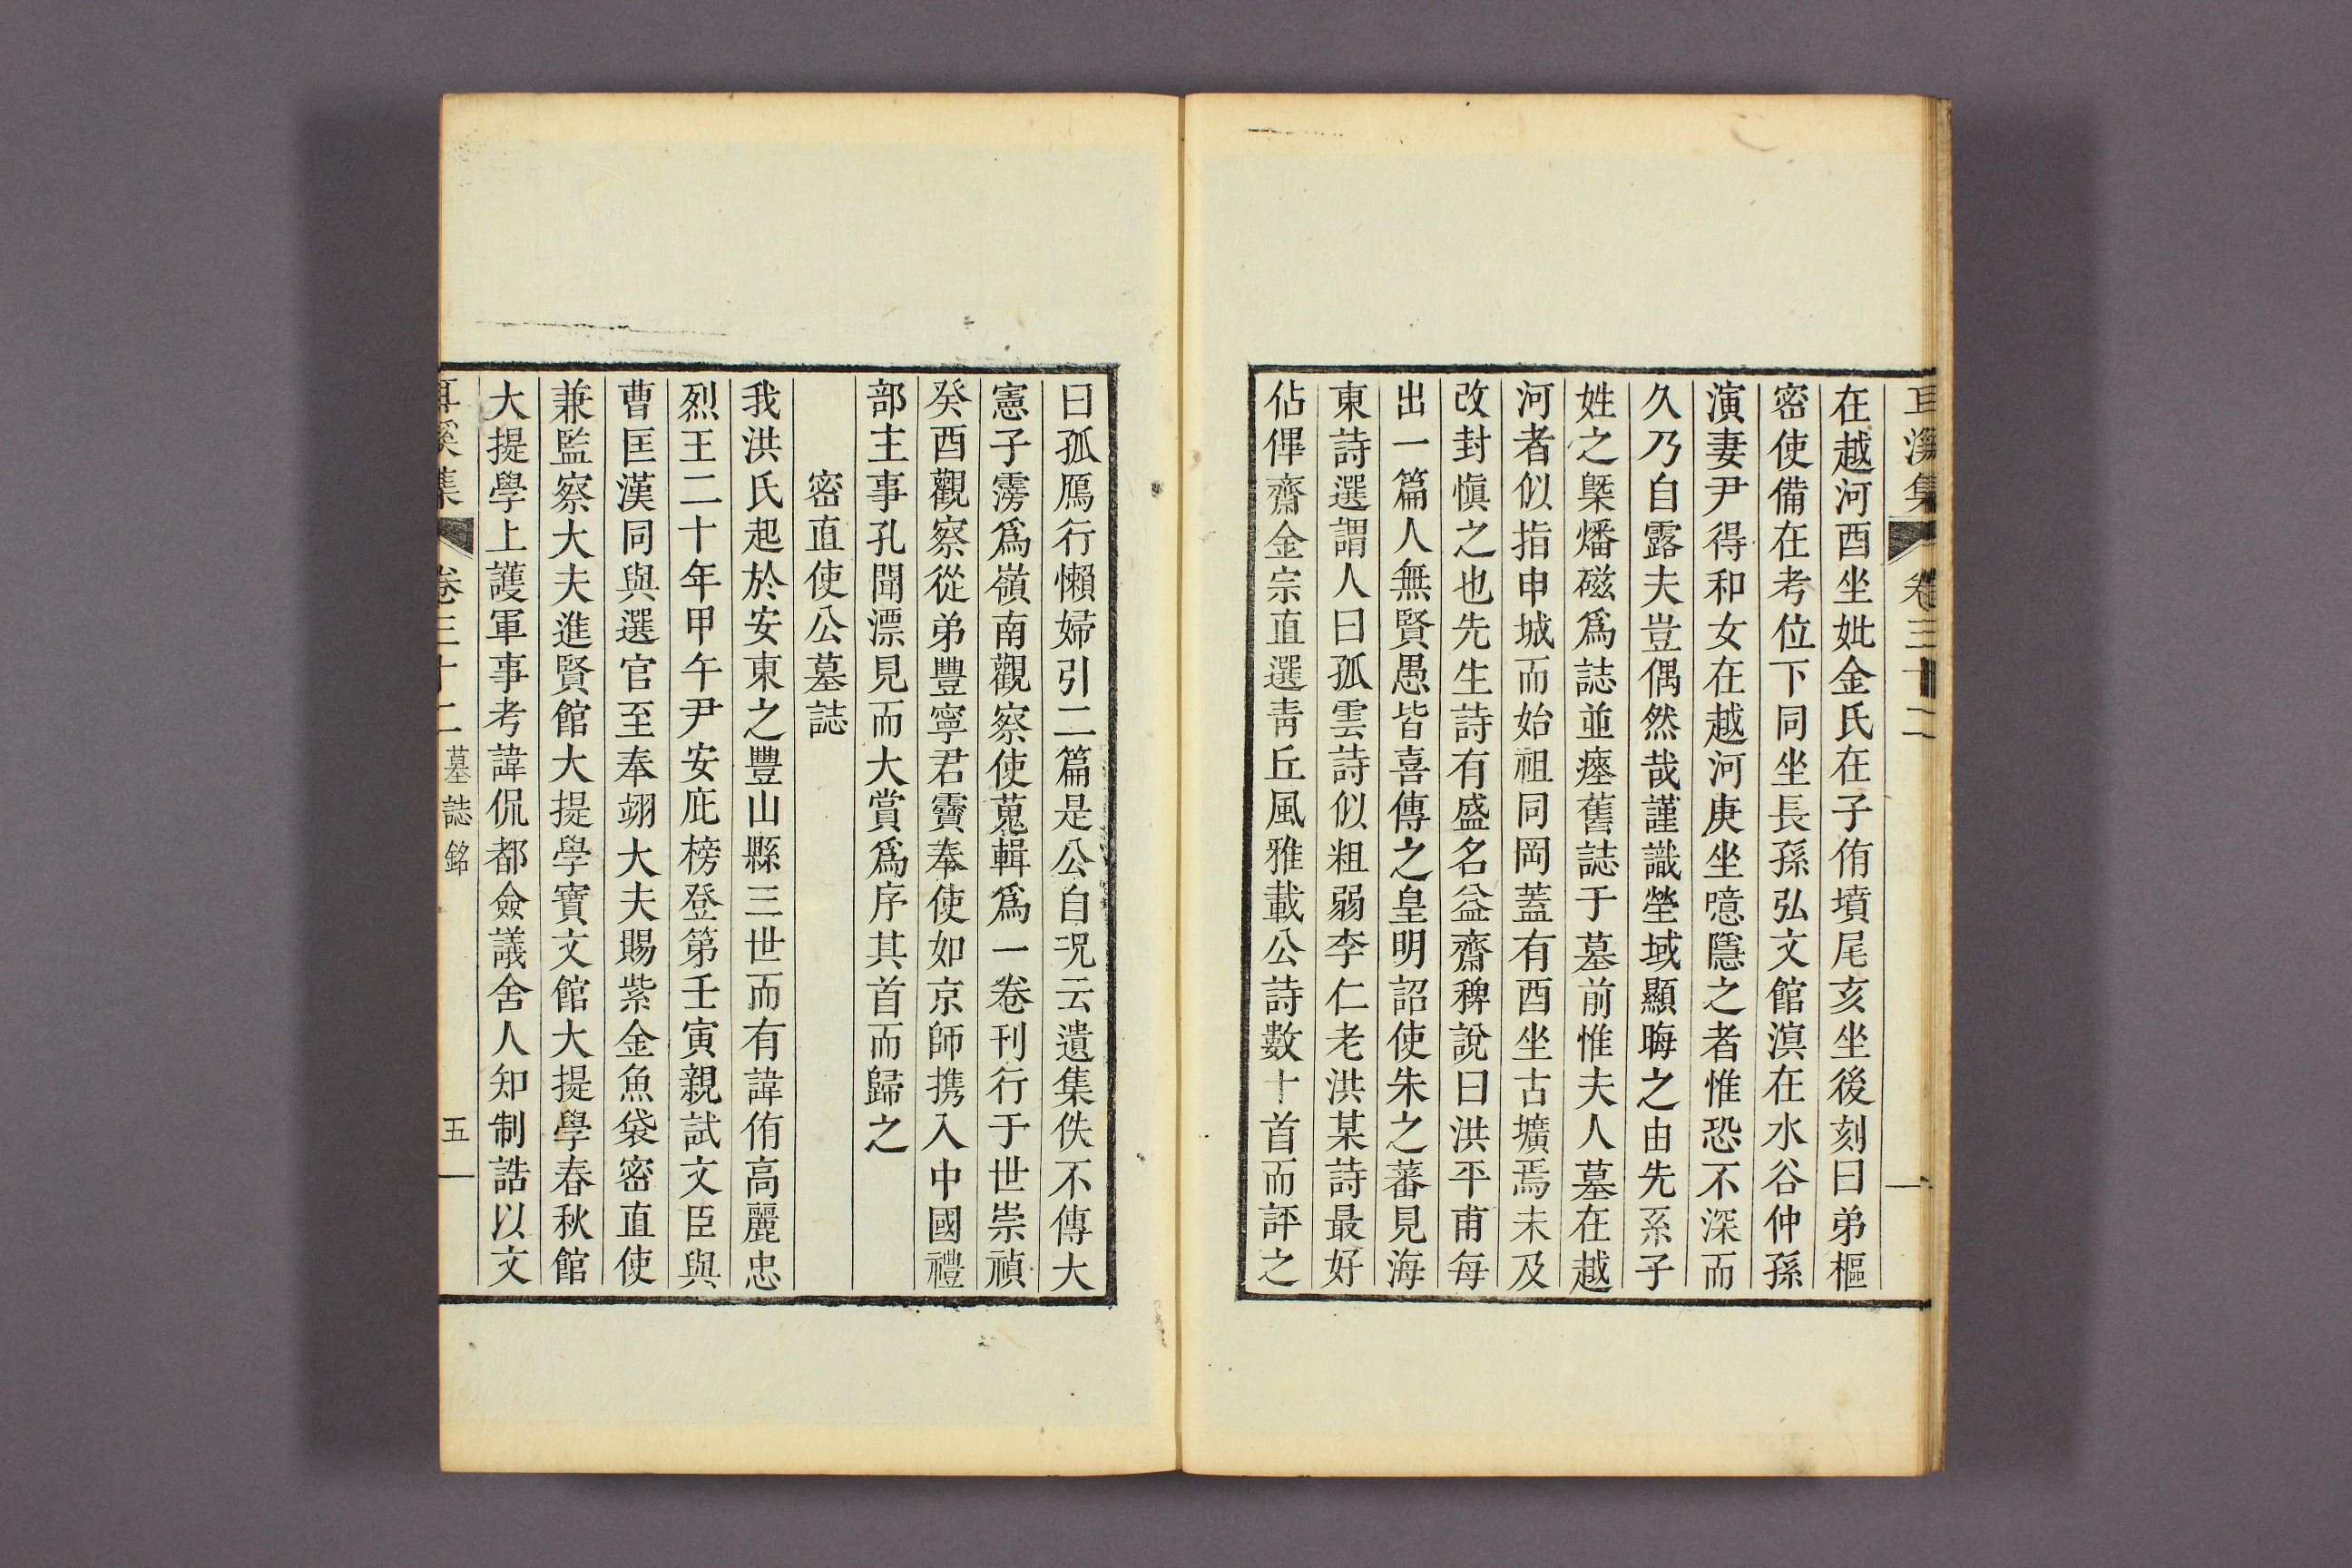 耳溪集 卷三十二
在越河酉坐妣金氏在子侑墳尾亥坐後刻曰弟樞
密使備在考位下同坐長孫弘文館演在水谷仲孫
演妻尹得和女在越河庚坐噫隱之者惟恐不深而
久乃自露夫豈偶然哉謹識塋域顯晦之由先系子
姓之槩燔磁爲誌並瘞舊誌于墓前惟夫人墓在越
河者似指申城而始祖同岡蓋有酉坐古壙焉未及
改封愼之也先生詩有盛名益齋稗說曰洪平甫每
出一篇人無賢愚皆喜傳之皇明詔使朱之蕃見海
東詩選謂人曰孤雲詩似粗弱李仁老洪某詩最好
佔俾齋金宗直選靑丘風雅載公詩數十首而評之
曰孤鴈行懶婦引二篇是公自况云遺集佚不傳大
憲子霶爲嶺南觀察使蒐輯爲一卷刊行于世崇禎
癸酉觀察從弟豐寧君霙奉使如京師携入中國禮
部主事孔聞漂見而大賞爲序其首而歸之
密直使公墓誌
我洪氏起於安東之豐山縣三世而有諱侑高麗忠
烈王二十年甲午尹安庇榜登第壬寅親試文臣與
曹匡漢同與選官至奉翊大夫賜紫金魚袋密直使
兼監察大夫進賢館大提學寶文館大提學春秋館
大提學上護軍事考諱侃都僉議舍人知制誥以文
耳溪集 卷三十二 墓誌銘 五